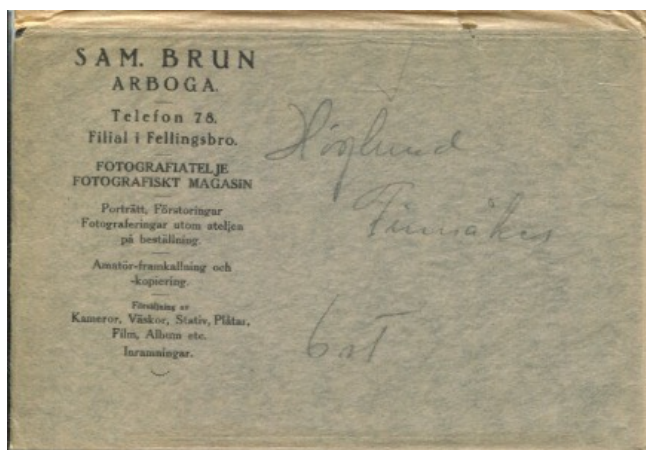 SAM. BRUN
ARBOGA.
Telefon 78.
Filial i Fellingsbro.
FOTOGRAFIATELJE
FOTOGRAFISKT MAGASIN
Porträtt, Förstoringar
Fotograferingar utom ateljen
på beställning.
Amatör-framkallning och
-kopiering.
Försäljning av
Kameror, Väskor, Stativ, Plåtar,
Film, Album etc.
Inramningar.
Höglund
Finnåker
6 st